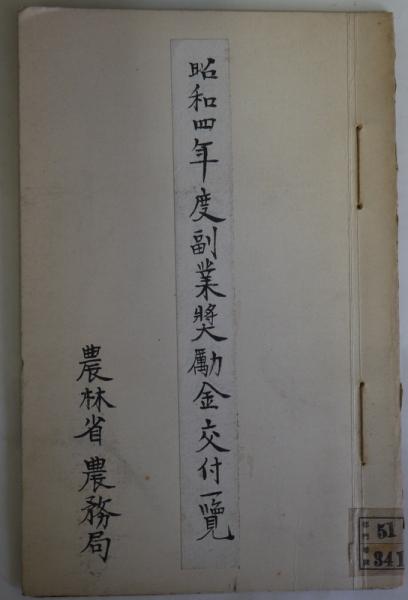 昭和四年度副業奬勵金交付一覽
農林省農務局
51
341